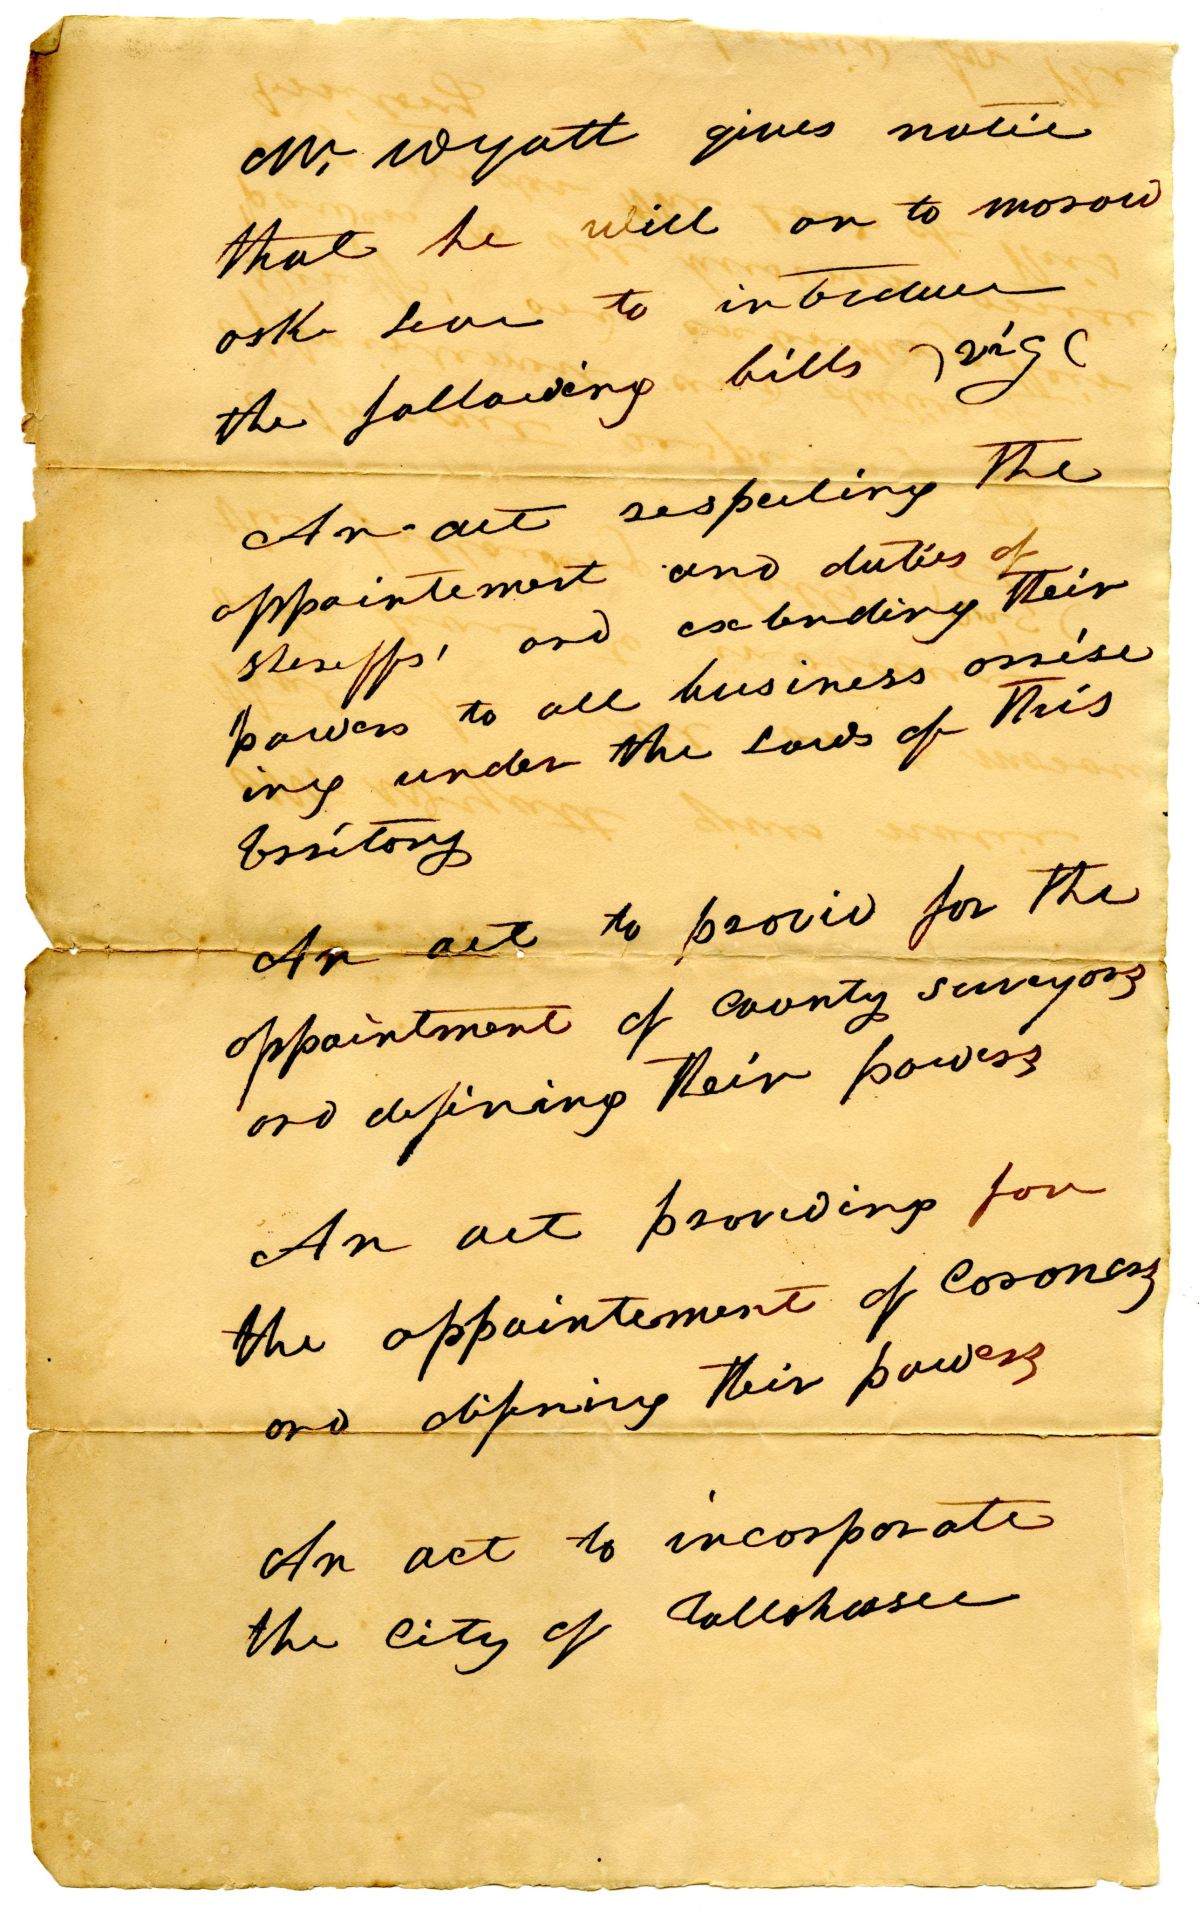 Mr Wyatt gives notice
that he will on to morow
ask leve to introduce
the following bills )viz(
An act respecting the
appointement and duties of
sheriffs' and extending their
powers to all business arrise
ing under the laws of this
territory
An act to provid for the
appointment of county surveyors
and defining their powers
An act providing for
the appointement of Coroners
and difining their powers
An act to incorporate
the City of Tallahassee